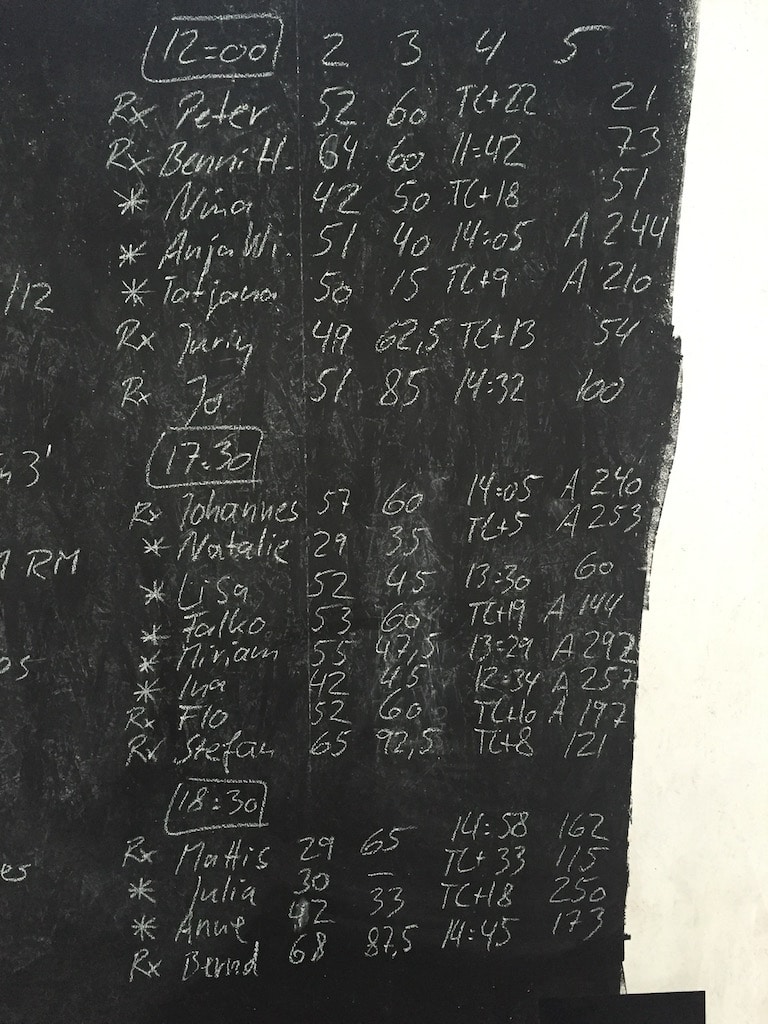 12:00 2 3 4 5
Rx Peter 52 60 TC+22 21
Rx Benni H. 64 60 11:42 73
* Nina 42 50 TC+18 51
/12
* Anja Wi. 51 40 14:05 A 244
* Tatjana 50 15 TC+9 A 210
Rx Juriy 49 62,5 TC+13 54
Rx Jo 51 85 14:32 100
17:30
3'
Rx Johannes 57 60 14:05 A 240
* Natalie 29 35 TC+5 A 253
RM
* Lisa 52 45 13:30 60
* Falko 53 60 TC+19 A 144
* Miriam 55 47,5 13:29 A 292
os
* Ina 42 45 12:34 A 257
Rx Flo 52 60 TC+10 A 197
Rx Stefan 65 92,5 TC+8 121
18:30
Rx Mattis 29 65 14:58 162
es
* Julia 30 – TC+33 115
* Anne 42 33 TC+18 250
Rx Bernd 68 87,5 14:45 173